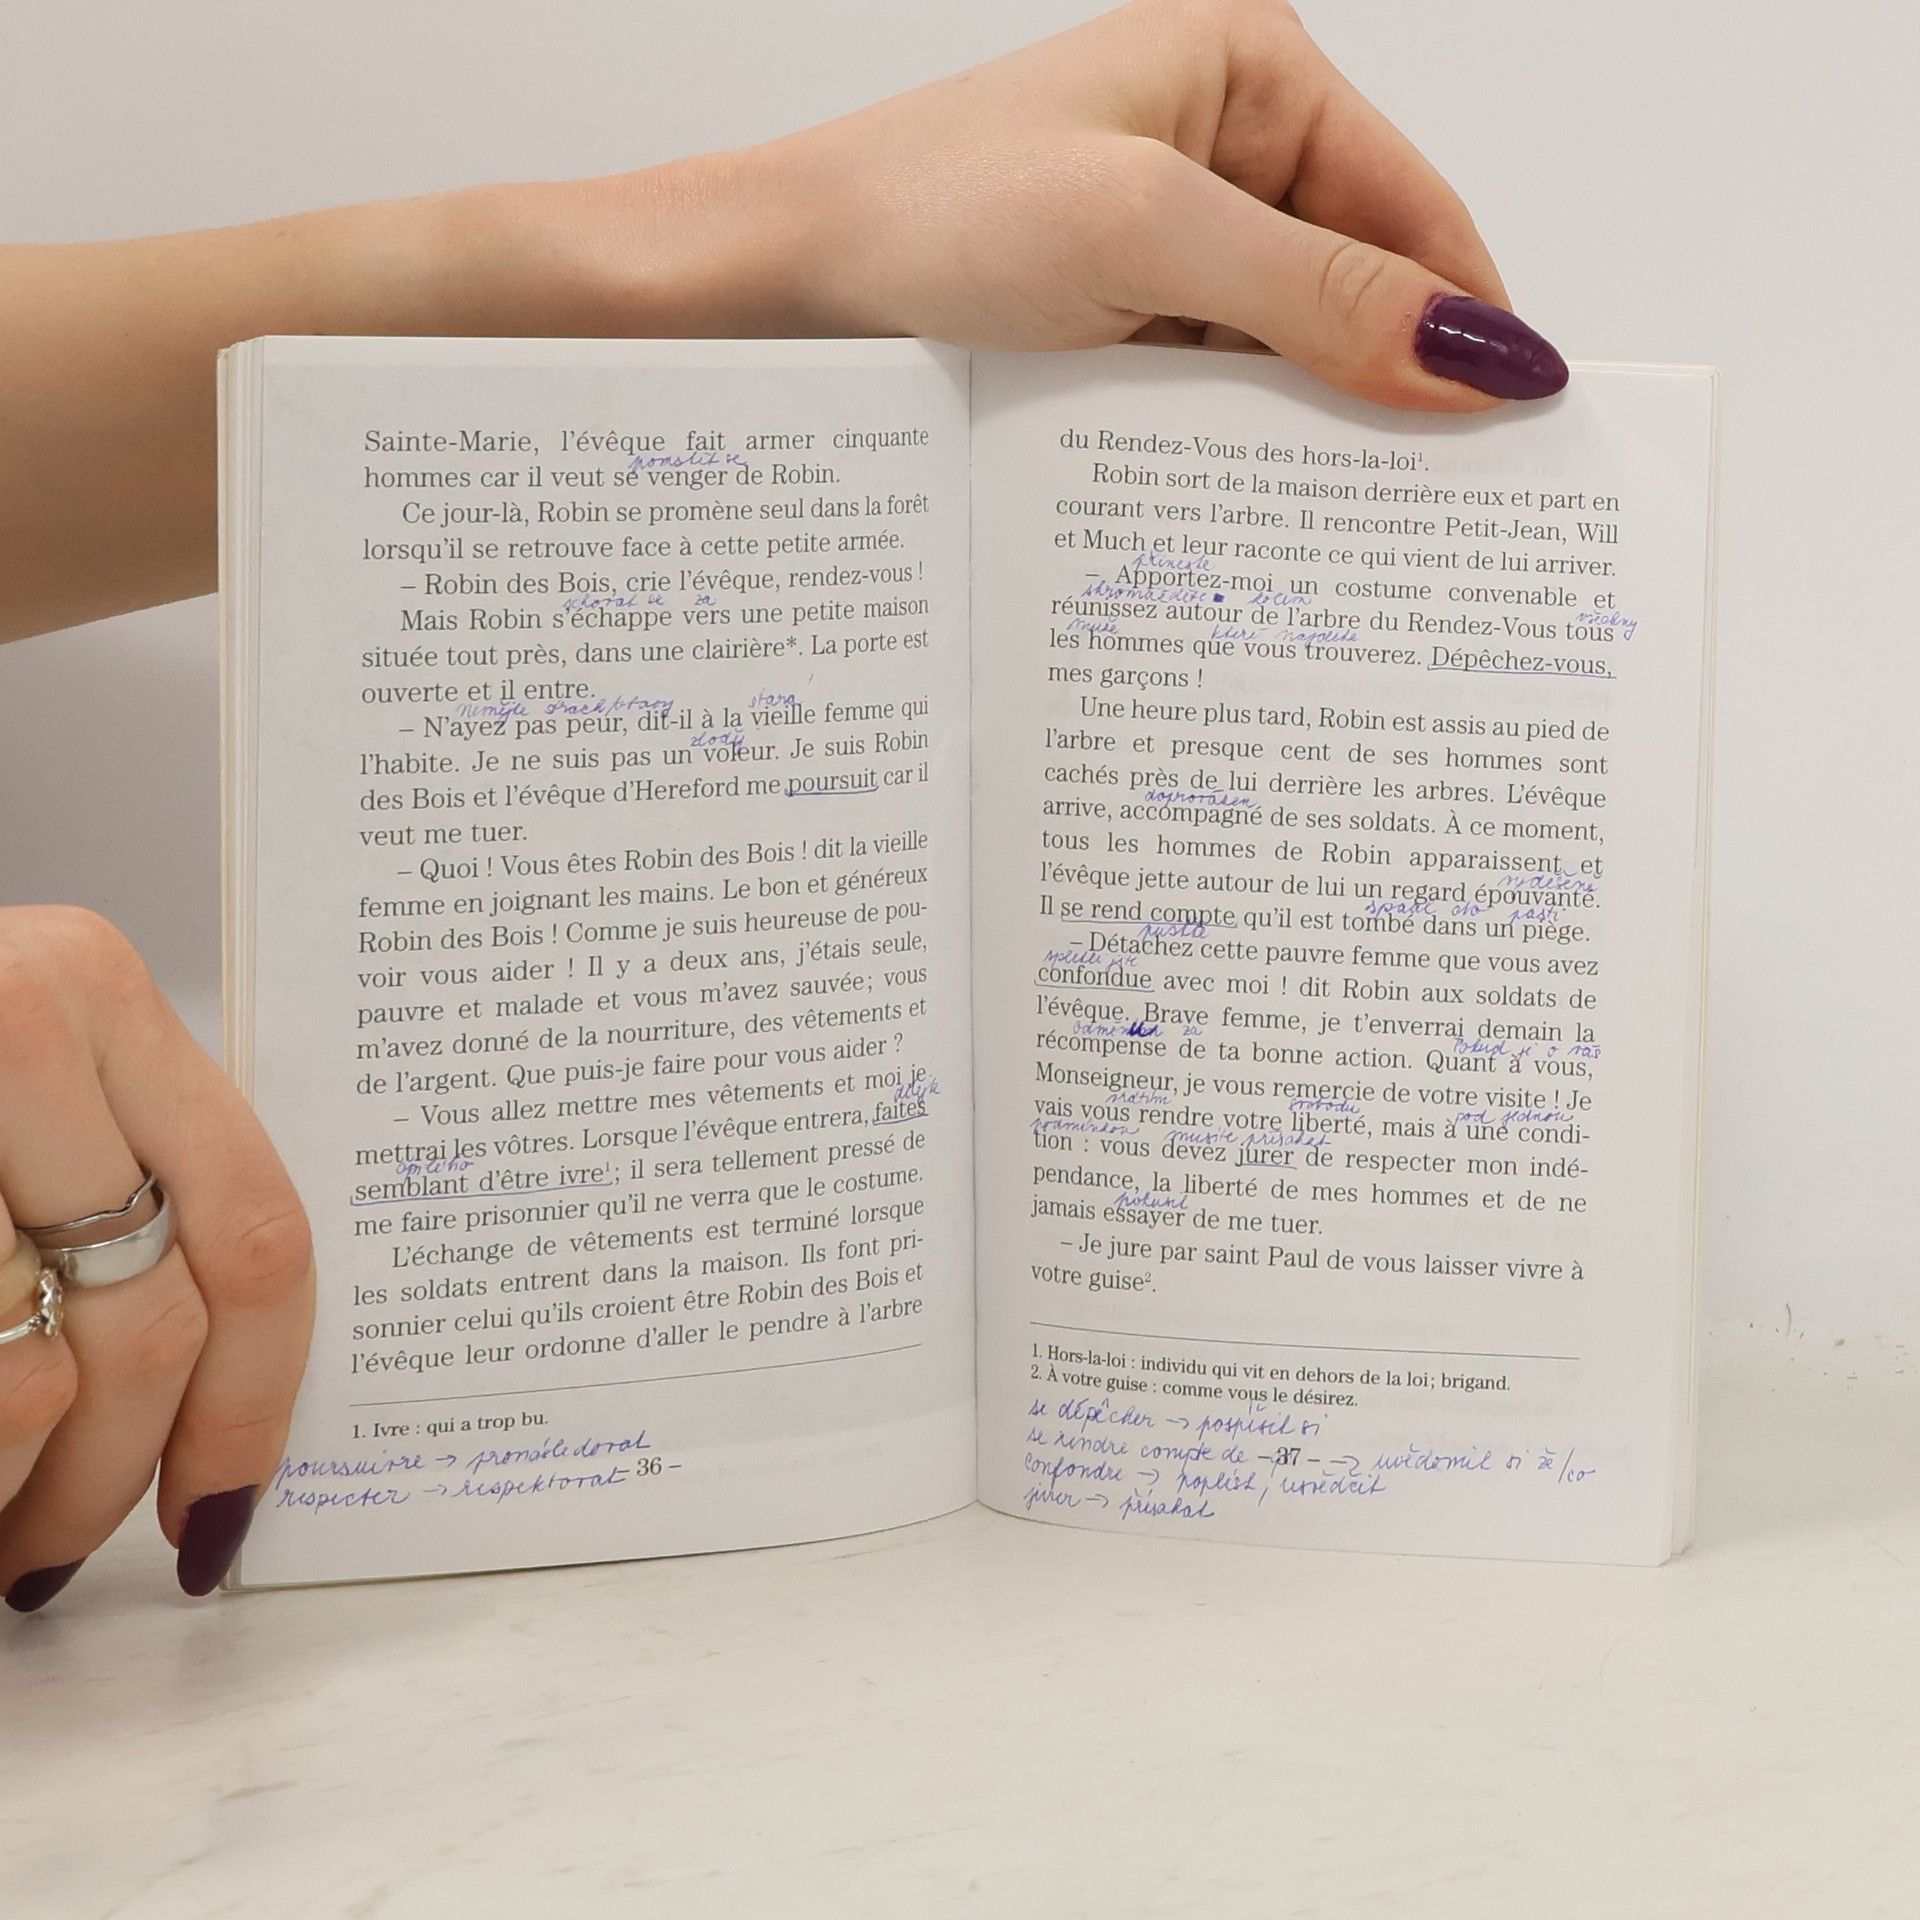 Sainte-Marie, l'évêque fait armer cinquante
pomstít se
hommes car il veut se venger de Robin.
Ce jour-là, Robin se promène seul dans la forêt
lorsqu'il se retrouve face à cette petite armée.
– Robin des Bois, crie l'évêque, rendez-vous !
schovat se za
Mais Robin s'échappe vers une petite maison
située tout près, dans une clairière*. La porte est
ouverte et il entre.
Nemějte strach/obavy stará
– N'ayez pas peur, dit-il à la vieille femme qui
zloděj
l'habite. Je ne suis pas un voleur. Je suis Robin
des Bois et l'évêque d'Hereford me poursuit car il
veut me tuer.
– Quoi ! Vous êtes Robin des Bois ! dit la vieille
femme en joignant les mains. Le bon et généreux
Robin des Bois ! Comme je suis heureuse de pou-
voir vous aider ! Il y a deux ans, j'étais seule,
pauvre et malade et vous m'avez sauvée ; vous
m'avez donné de la nourriture, des vêtements et
de l'argent. Que puis-je faire pour vous aider ?
– Vous allez mettre mes vêtements et moi je
mettrai les vôtres. Lorsque l'évêque entrera, faites
opilého
semblant d'être ivre¹ ; il sera tellement pressé de
me faire prisonnier qu'il ne verra que le costume.
L'échange de vêtements est terminé lorsque
les soldats entrent dans la maison. Ils font pri-
sonnier celui qu'ils croient être Robin des Bois et
l'évêque leur ordonne d'aller le pendre à l'arbre
1. Ivre : qui a trop bu.
poursuivre → pronásledovat
respecter → respektovat
– 36 –
du Rendez-Vous des hors-la-loi¹.
Robin sort de la maison derrière eux et part en
courant vers l'arbre. Il rencontre Petit-Jean, Will
et Much et leur raconte ce qui vient de lui arriver.
přineste
– Apportez-moi un costume convenable et
shromážděte kolem všechny
réunissez autour de l'arbre du Rendez-Vous tous
muže které najdete
les hommes que vous trouverez. Dépêchez-vous,
mes garçons !
Une heure plus tard, Robin est assis au pied de
l'arbre et presque cent de ses hommes sont
cachés près de lui derrière les arbres. L'évêque
doprovázen
arrive, accompagné de ses soldats. À ce moment,
tous les hommes de Robin apparaissent et
vyděšeně
l'évêque jette autour de lui un regard épouvanté.
spadl do pasti
Il se rend compte qu'il est tombé dans un piège.
pusťte
– Détachez cette pauvre femme que vous avez
spletli jste
confondue avec moi ! dit Robin aux soldats de
l'évêque. Brave femme, je t'enverrai demain la
za Pokud jde o vás
récompense de ta bonne action. Quant à vous,
Monseigneur, je vous remercie de votre visite ! Je
vrátím svobodu pod jednou
vais vous rendre votre liberté, mais à une condi-
podmínkou musíte přísahat
tion : vous devez jurer de respecter mon indé-
pendance, la liberté de mes hommes et de ne
pokusit
jamais essayer de me tuer.
– Je jure par saint Paul de vous laisser vivre à
votre guise².
1. Hors-la-loi : individu qui vit en dehors de la loi ; brigand.
2. À votre guise : comme vous le désirez.
se dépêcher → pospíšit si
se rendre compte de → uvědomit si že/co
– 37 –
confondre → poplést,
jurer → přísahat